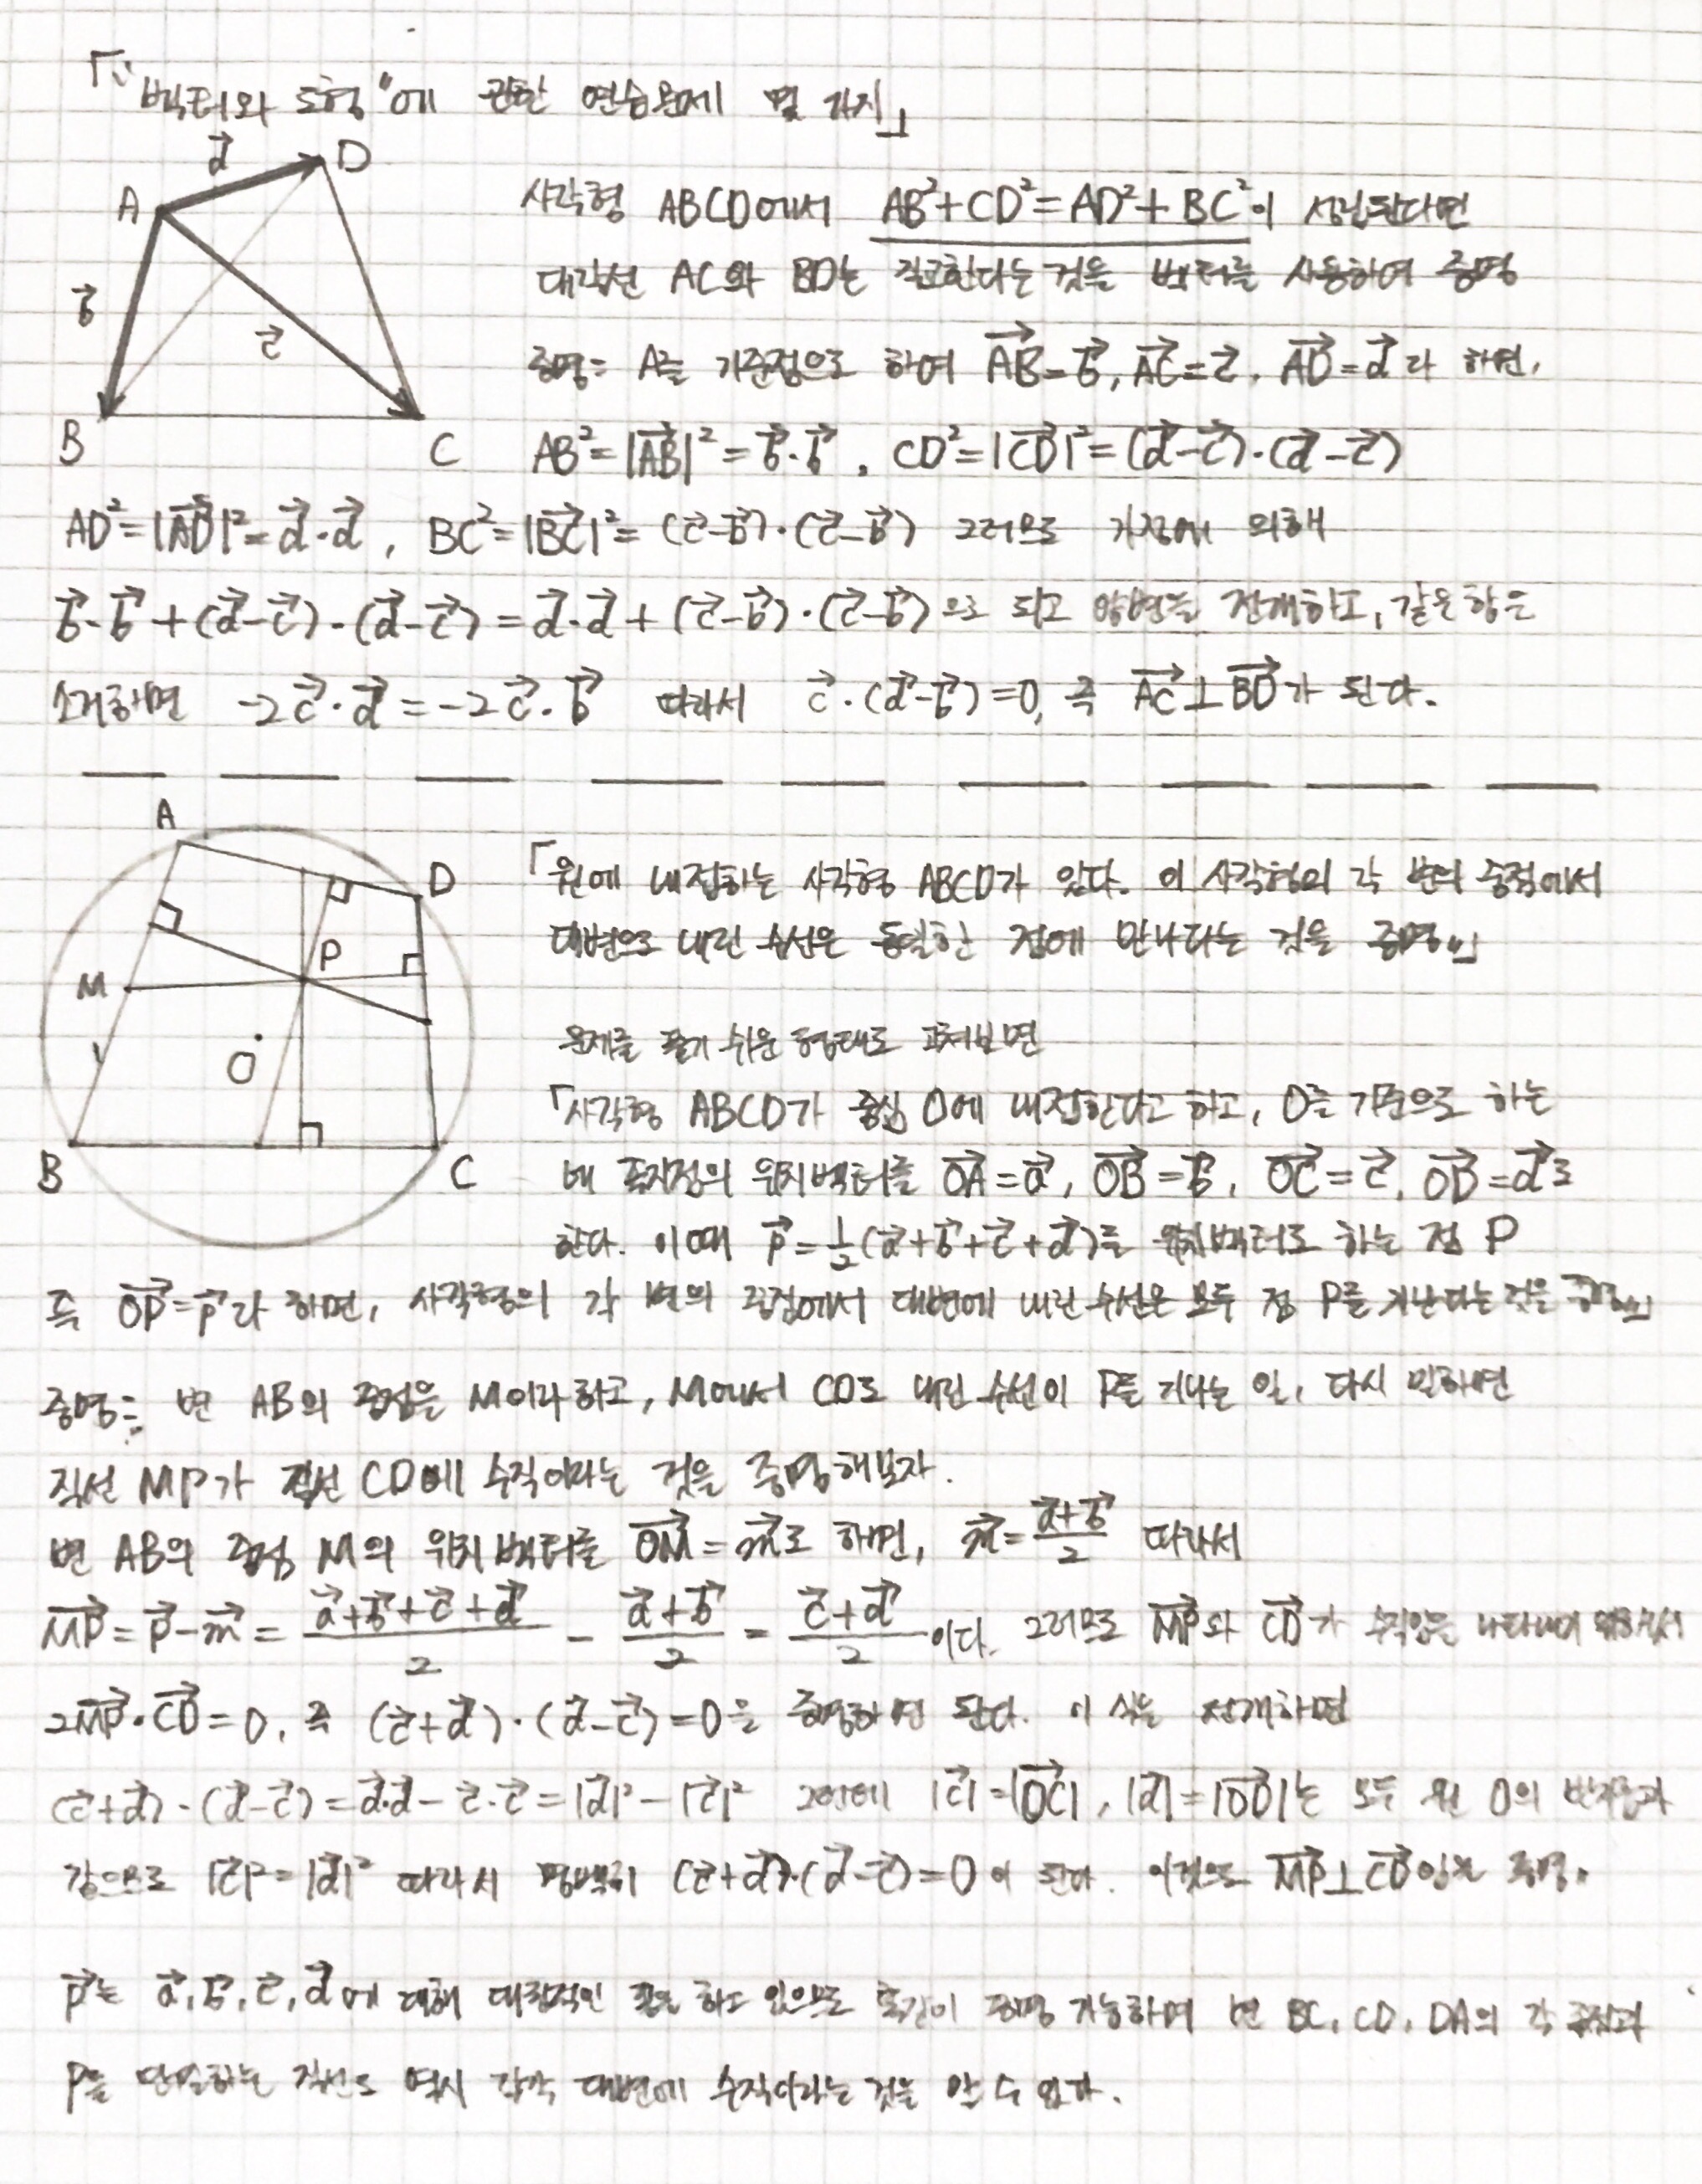 「"벡터와 도형"에 관한 연습문제 몇 가지」
A
D
d⃗
b⃗
c⃗
B
C
사각형 ABCD에서 AB²+CD²=AD²+BC²이 성립된다면
대각선 AC와 BD는 직교한다는 것을 벡터를 사용하여 증명
증명: A를 기준점으로 하여 AB⃗=b⃗, AC⃗=c⃗, AD⃗=d⃗라 하면,
AB²=|AB⃗|²=b⃗·b⃗, CD²=|CD⃗|²=(d⃗-c⃗)·(d⃗-c⃗)
AD²=|AD⃗|²=d⃗·d⃗, BC²=|BC⃗|²=(c⃗-b⃗)·(c⃗-b⃗) 그러므로 가정에 의해
b⃗·b⃗+(d⃗-c⃗)·(d⃗-c⃗)=d⃗·d⃗+(c⃗-b⃗)·(c⃗-b⃗)으로 되고 양변을 전개하고, 같은 항을
소거하면 -2c⃗·d⃗=-2c⃗·b⃗ 따라서 c⃗·(d⃗-b⃗)=0, 즉 AC⃗⊥BD⃗가 된다.
A
D
P
M
O
B
C
「원에 내접하는 사각형 ABCD가 있다. 이 사각형의 각 변의 중점에서
대변으로 내린 수선은 동일한 점에 만나다는 것을 증명」
문제를 풀기 쉬운 형태로 고쳐보면
「사각형 ABCD가 중심 O에 내접한다고 하고, O를 기준으로 하는
네 꼭지점의 위치벡터를 OA⃗=a⃗, OB⃗=b⃗, OC⃗=c⃗, OD⃗=d⃗로
한다. 이때 p⃗=1/2(a⃗+b⃗+c⃗+d⃗)를 위치벡터로 하는 점 P
즉 OP⃗=p⃗라 하면, 사각형의 각 변의 중점에서 대변에 내린 수선은 모두 점 P를 지난다는 것을 증명」
증명: 변 AB의 중점을 M이라 하고, M에서 CD로 내린 수선이 P를 지나는 일, 다시 말하면
직선 MP가 직선 CD에 수직이라는 것을 증명해보자.
변 AB의 중점 M의 위치벡터를 OM⃗=m⃗로 하면, m⃗=(a⃗+b⃗)/2 따라서
MP⃗=p⃗-m⃗=(a⃗+b⃗+c⃗+d⃗)/2-(a⃗+b⃗)/2=(c⃗+d⃗)/2이다. 그러므로 MP⃗와 CD⃗가 수직임을 나타내기 위해서
2MP⃗·CD⃗=0, 즉 (c⃗+d⃗)·(d⃗-c⃗)=0을 증명하면 된다. 이 식을 전개하면
(c⃗+d⃗)·(d⃗-c⃗)=d⃗·d⃗-c⃗·c⃗=|d⃗|²-|c⃗|² 그런데 |c⃗|=|OC⃗|, |d⃗|=|OD⃗|는 모두 원 O의 반지름과
같으므로 |c⃗|²=|d⃗|² 따라서 명백히 (c⃗+d⃗)·(d⃗-c⃗)=0이 된다. 이것으로 MP⃗⊥CD⃗임을 증명.
p⃗는 a⃗, b⃗, c⃗, d⃗에 대해 대칭적인 꼴을 하고 있으므로 똑같이 증명 가능하며 변 BC, CD, DA의 각 중점과
P를 연결하는 직선도 역시 각각 대변에 수직이라는 것을 알 수 있다.